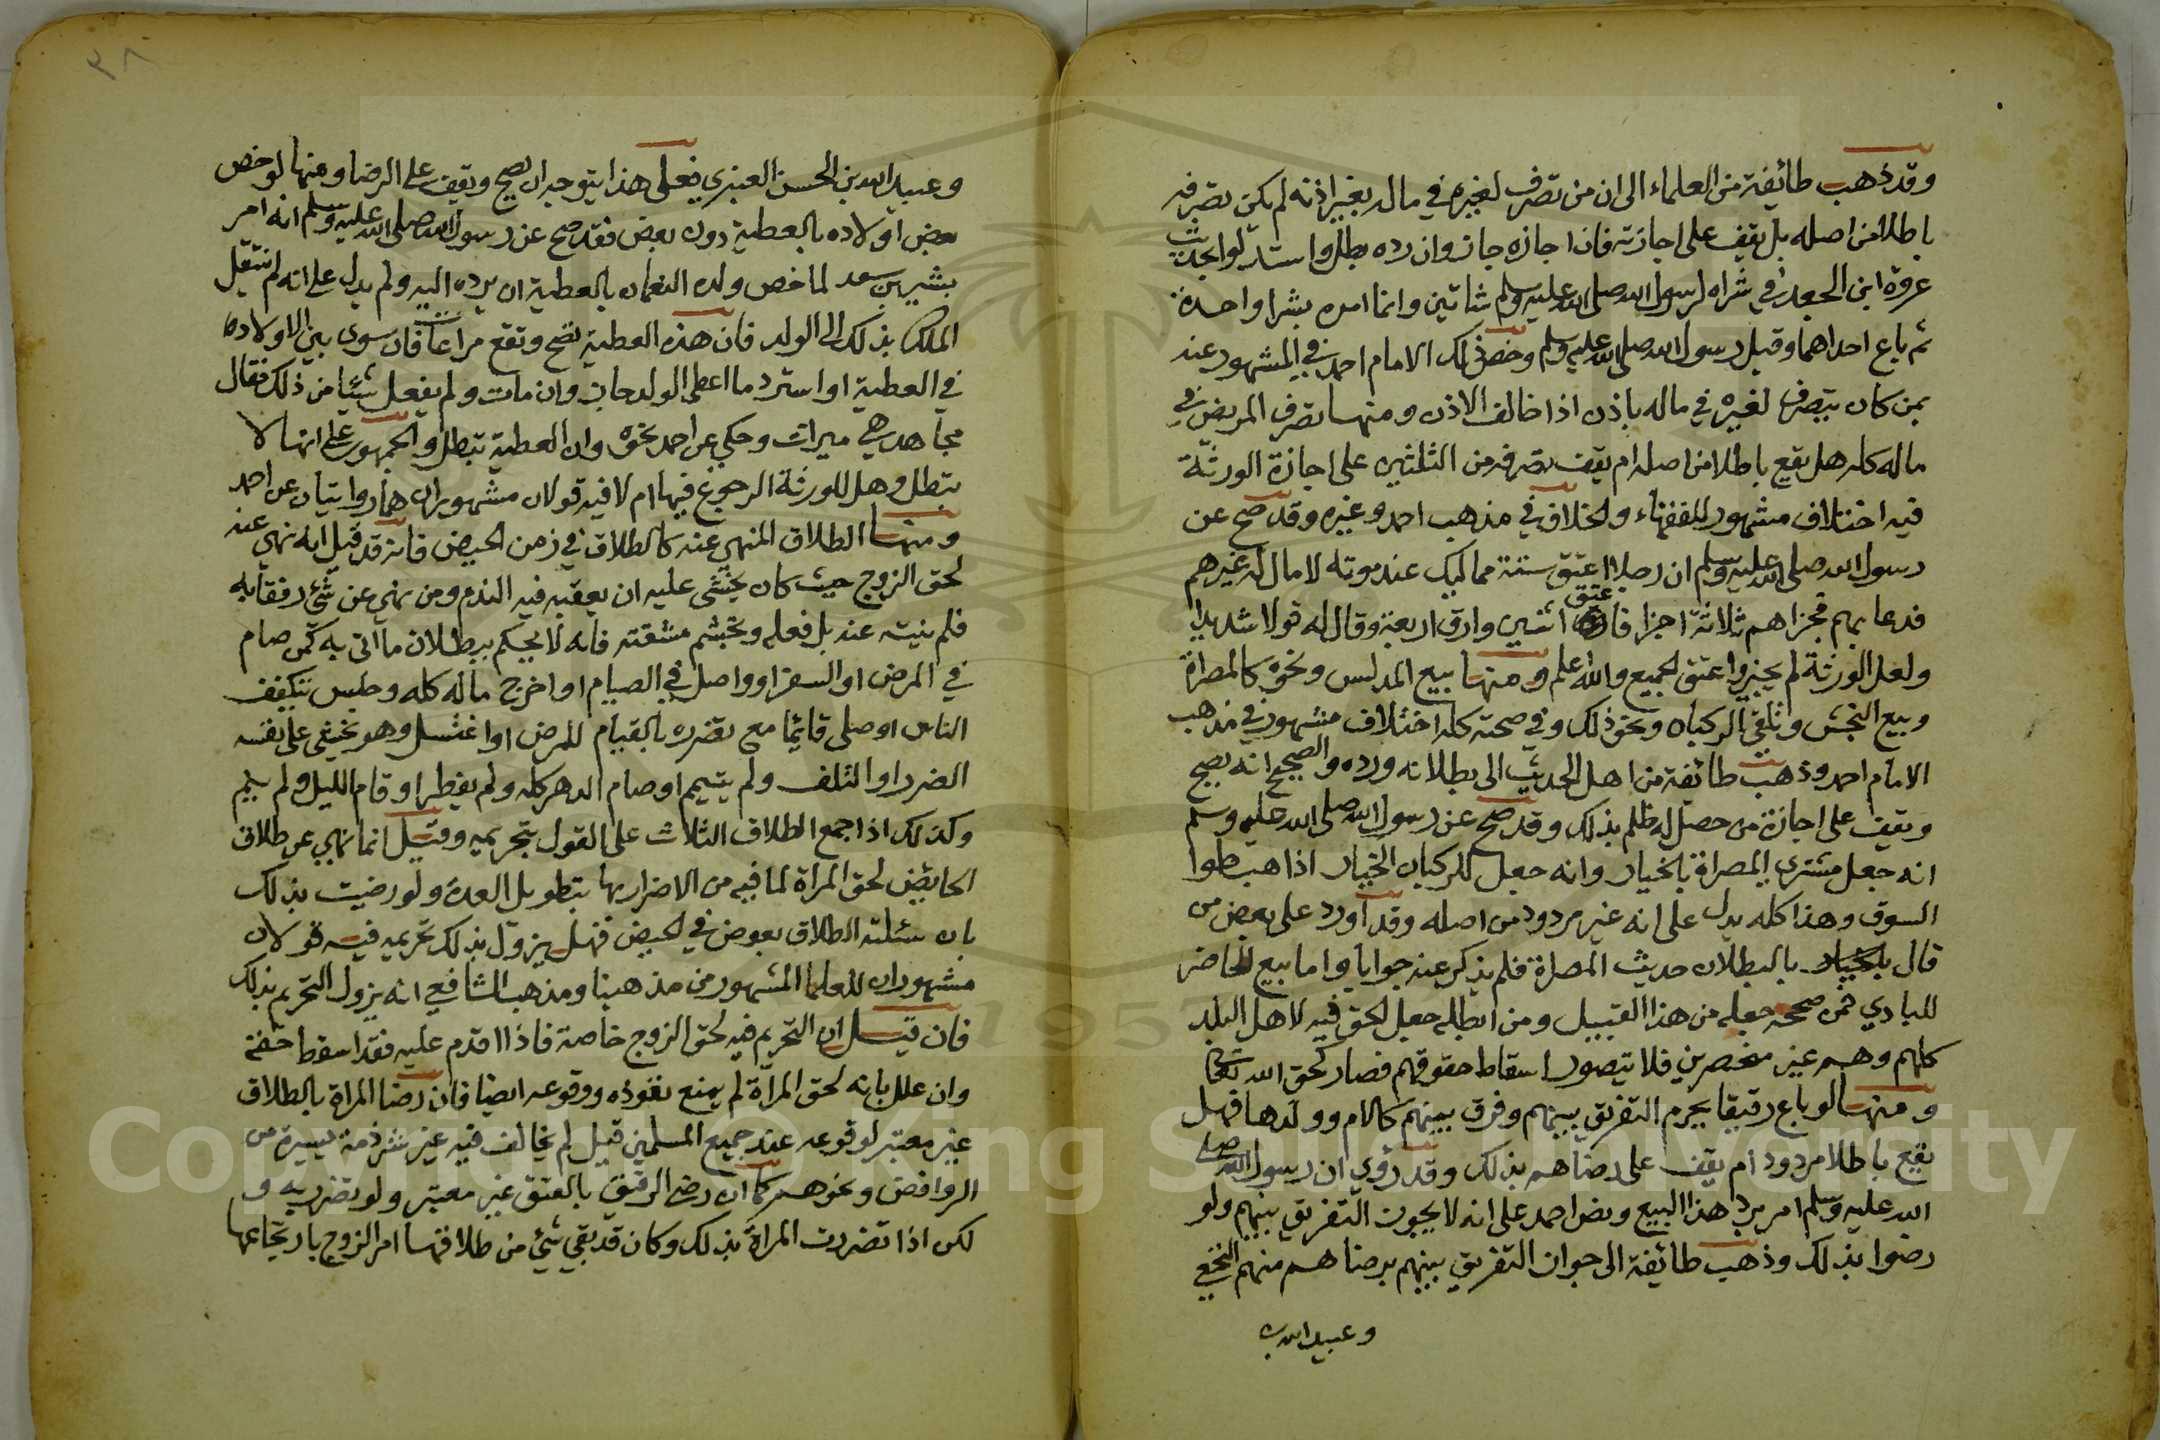 وقد ذهب طائفة من العلماء الى ان من تصرف لغيره في ماله بغير اذنه لم يكن تصرفه
باطلا من اصله بل يقف على اجازته فان اجازه جاز وان رده بطل واستدلوا بحديث
عروة ابن الجعد في شراه لرسول الله صلى الله عليه وسلم شاتين وانما امره بشرا واحدة
ثم باع احداهما وقبل رسول الله صلى الله عليه وسلم وخص ذلك الامام احمد في المشهور عنه
بمن كان يتصرف لغيره في ماله باذن اذا خالف الاذن ومنها تصرف المريض في
ماله كله هل يقع باطلا من اصله ام يقف تصرفه من الثلثين على اجازة الورثة
فيه اختلاف مشهور للفقهاء والخلاف في مذهب احمد وغيره وقد صح عن
رسول الله صلى الله عليه وسلم ان رجلا اعتق ستة مماليك عند موته لا مال له غيرهم
فدعا بهم فجزاهم ثلاثة اجزا فاعتق اثنين وارق اربعة وقال له قولا شديدا
ولعل الورثة لم يجيزوا عتق الجميع والله اعلم ومنها بيع المدلس ونحوه كالمصراة
وبيع النجش وتلقي الركبان ونحو ذلك وفي صحته كله اختلاف مشهور في مذهب
الامام احمد وذهب طائفة من اهل الحديث الى بطلانه ورده والصحيح انه يصح
ويقف على اجازة من حصل له ظلم بذلك وقد صح عن رسول الله صلى الله عليه وسلم
انه جعل مشتري المصراة بالخيار وانه جعل للركبان الخيار اذا هبطوا
السوق وهذا كله يدل على انه غير مردود من اصله وقد اورد على بعض من
قال بالبطلان حديث المصراة فلم يذكر عنه جوابا واما بيع الحاضر
للبادي فمن صححه جعله من هذا القبيل ومن ابطله جعل الحق فيه لاهل البلد
كلهم وهم غير منحصرين فلا يتصور اسقاط حقوقهم فصار كحق الله تعالى
ومنها لو باع رقيقا يحرم التفريق بينهم وفرق بينهم كالام وولدها فهل
يقع باطلا مردود ام يقف على رضاهم بذلك وقد روي ان رسول الله صلى
الله عليه وسلم امر برد هذا البيع ونص احمد على انه لا يجوز التفريق بينهم ولو
رضوا بذلك وذهب طائفة الى جواز التفريق بينهم برضاهم منهم النخعي
وعبيد الله بن
٣٨
وعبيد الله بن الحسن العنبري فعلى هذا يتوجه ان يصح ويقف على الرضا ومنها لو خص
بعض اولاده بالعطية دون بعض فقد صح عن رسول الله صلى الله عليه وسلم انه امر
بشير بن سعد لما خص ولده النعمان بالعطية ان يرده اليه ولم يدل على انه لم ينتقل
الملك بذلك الى الولد فان هذه العطية تصح وتقع مراعات فان سوى بين الاولاد
في العطية او استرد ما اعطى الولد جاز وان مات ولم يفعل شيئا من ذلك فقال
مجاهد هي ميراث وحكي عن احمد نحوه وان العطية تبطل والجمهور على انها لا
تبطل وهل للورثة الرجوع فيها ام لا فيه قولان مشهوران هما روايتان عن احمد
ومنها الطلاق المنهي عنه كالطلاق في زمن الحيض فانه قد قيل انه نهي عنه
لحق الزوج حيث كان يخشى عليه ان يعقبه فيه الندم ومن نهي عن شئ رفقا به
فلم ينته عنه بل فعله وتجشم مشقته فانه لا يحكم ببطلان ما اتى به كمن صام
في المرض او السفر او واصل في الصيام او اخرج ماله كله وجلس يتكفف
الناس او صلى قائما مع تضرره بالقيام للمرض او اغتسل وهو يخشى على نفسه
الضرر او التلف ولم يتيمم او صام الدهر كله ولم يفطر او قام الليل ولم ينم
وكذلك اذا جمع الطلاق الثلاث على القول بتحريمه وقيل انما نهي عن طلاق
الحائض لحق المراة لما فيه من الاضرار بها بتطويل العدة ولو رضيت بذلك
بان سئلته الطلاق بعوض في الحيض فهل يزول بذلك تحريمه فيه قولان
مشهوران للعلما المشهور من مذهبنا ومذهب الشافعي انه يزول التحريم بذلك
فان قيل ان التحريم فيه لحق الزوج خاصة فاذا اقدم عليه فقد اسقط حقه
وان علل بانه لحق المراة لم يمنع نفوذه ووقوعه ايضا فان رضا المراة بالطلاق
غير معتبر لوقوعه عند جميع المسلمين قيل لم يخالف فيه غير شرذمة يسيرة من
الروافض ونحوهم كما ان رضى الرقيق بالعتق غير معتبر ولو تضرر به و
لكن اذا تضررت المراة بذلك وكان قد بقي شئ من طلاقها امر الزوج بارتجاعها
Copyright © King Saud University
1957